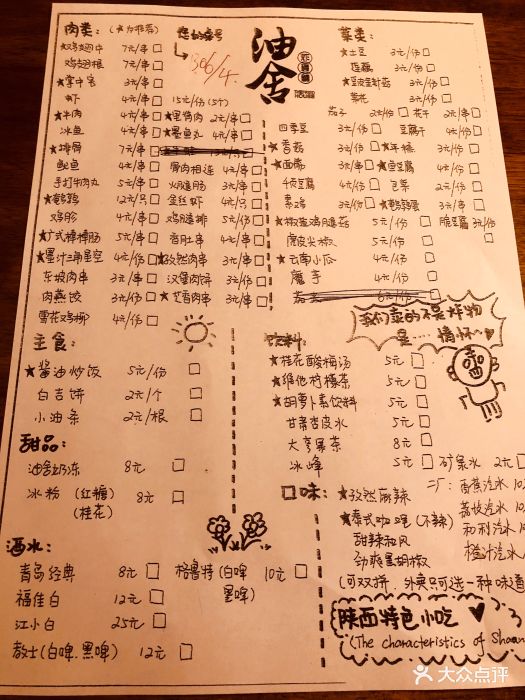 肉类: (★为推荐)
您的桌号
油舍
炸寡舖
菜类:
★鸡翅中 7元/串 □
鸡翅根 7元/串 □
★掌中宝 3元/串 □
虾 4元/串 □ 15元/份(5个)
★牛肉 4元/串 □
冰鱼 4元/串 □
★排骨 7元/串 □
鱿鱼 4元/串 □
手打牛肉丸 5元/串 □
★鹌鹑 12元/只 □
鸡胗 4元/串 □
★广式棒棒肠 5元/串 □
★墨汁三角星空 4元/串 □
东坡肉串 3元/串 □
肉燕饺 3元/份 □
雪花鸡柳 4元/份 □
★里脊肉 2元/串 □
★墨鱼丸 4元/串 □
骨肉相连 4元/串 □
火腿肠 3元/串 □
金丝虾 4元/份 □
鸡腿排 5元/份 □
香肚串 4元/串 □
★孜然肉串 3元/串 □
汉堡肉饼 3元/份 □
★芝香肉串 3元/份 □
★土豆 3元/份 □
莲藕 3元/份 □
★豆皮金针菇 3元/份 □
菜花 3元/份 □
茄子 2元/份 □ 花干 2元/串 □
四季豆 3元/份 □ 豆腐干 4元/份 □
★香菇 3元/份 □ ★年糕 3元/份 □
★面筋 3元/份 □ ★鱼豆腐 4元/份 □
千页豆腐 3元/份 □ 包菜 2元/份 □
素鸡 3元/份 □ ★鹌鹑蛋 3元/串 □
★椒盐鸡腿菇 5元/份 □ 脆豆腐 3元/份 □
虎皮尖椒 5元/份 □
★云南小瓜 4元/份 □
魔芋 4元/份 □
我们卖的不是炸物
是……情怀~
主食:
★酱油炒饭 5元/份 □
白吉饼 2元/个 □
小油条 2元/根 □
甜品:
油舍奶冻 8元 □
冰粉 (红糖) 8元 □
(桂花)
饮料:
★桂花酸梅汤 5元 □
★维他柠檬茶 5元 □
★胡萝卜素饮料 5元 □
甘蔗杏皮水 5元 □
大亨果茶 8元 □
冰峰 5元 □ 矿泉水 2元 □
二厂:
香蕉汽水
荔枝汽水
和利汽水
橙汁汽水
口味:
★孜然麻辣
★泰式咖喱 (不辣)
甜辣和风
劲爽黑胡椒
(可双拼, 外卖只可选一种味道
酒水:
青岛经典 8元 □
福佳白 12元 □
江小白 25元 □
教士(白啤.黑啤) 12元 □
格鲁特(白啤 10元 □
黑啤)
陕西特色小吃
(The characteristics of Shaan
大众点评